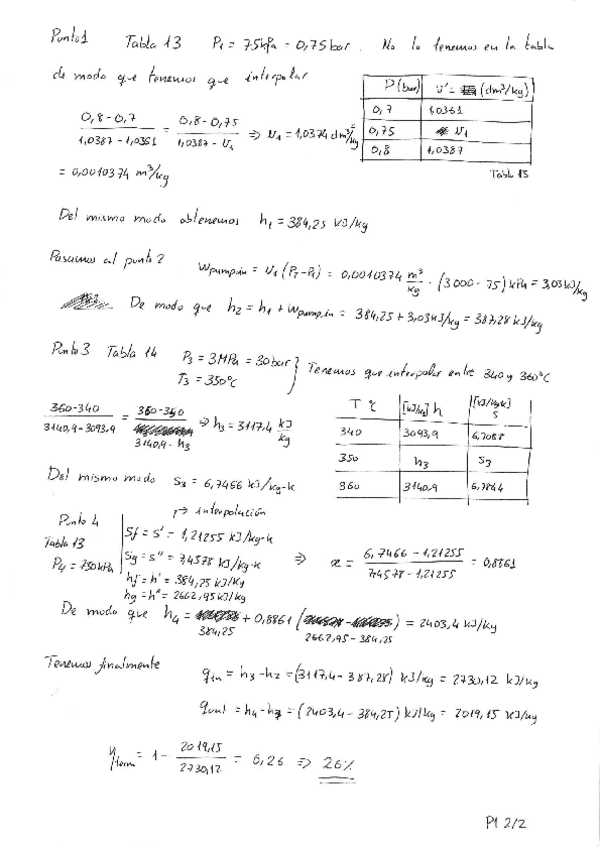 Punto 1 Tabla 13 P1 = 75kPa = 0,75 bar. No lo tenemos en la tabla
de modo que tenemos que interpolar
P(bar) v' = (dm³/kg)
0,7 1,0361
0,75 v1
0,8 1,0387
Tabla 13
(0,8-0,7)/(1,0387-1,0361) = (0,8-0,75)/(1,0387-v1) ⇒ v1 = 1,0374 dm³/kg =
= 0,0010374 m³/kg
Del mismo modo obtenemos h1 = 384,25 kJ/kg
Pasamos al punto 2 Wpump,in = v1 (P2-P1) = 0,0010374 m³/kg · (3000-75) kPa = 3,03 kJ/kg
De modo que h2 = h1 + Wpump,in = 384,25 + 3,03 kJ/kg = 387,28 kJ/kg
Punto 3 Tabla 14 P3 = 3MPa = 30bar
T3 = 350°C } Tenemos que interpolar entre 340 y 360°C
(360-340)/(3140,9-3093,9) = (360-350)/(3140,9-h3) ⇒ h3 = 3117,4 kJ/kg
T °C [kJ/kg] h [kJ/kg·K] s
340 3093,9 6,7088
350 h3 s3
360 3140,9 6,7844
Del mismo modo s3 = 6,7466 kJ/kg·K
↱ interpolación
Punto 4
Tabla 13
sf = s' = 1,21255 kJ/kg·K
sg = s'' = 7,4578 kJ/kg·K
hf = h' = 384,25 kJ/kg
hg = h'' = 2662,95 kJ/kg
⇒ x = (6,7466-1,21255)/(7,4578-1,21255) = 0,8861
De modo que h4 = 384,25 + 0,8861 (2662,95-384,25) = 2403,4 kJ/kg
Tenemos finalmente qin = h3-h2 = (3117,4-387,28) kJ/kg = 2730,12 kJ/kg
(2403,4-384,25) kJ/kg = 2019,15 kJ/kg
ηterm = 1 - 2019,15/2730,12 = 0,26 ⇒ 26%
P1 2/2